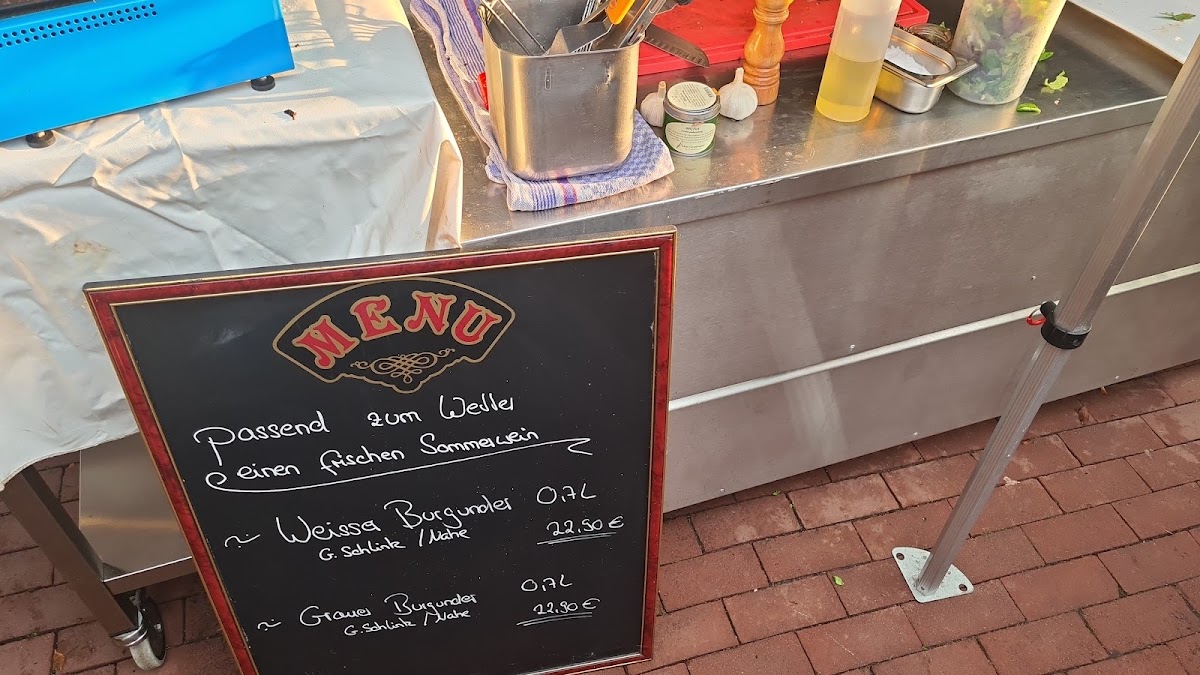 MENU
Passend zum Wetter
einen frischen Sommerwein
Weisser Burgunder 0,7L
G. Schlink / Nahe 22,50 €
Grauer Burgunder 0,7L
G. Schlink / Nahe 22,90 €